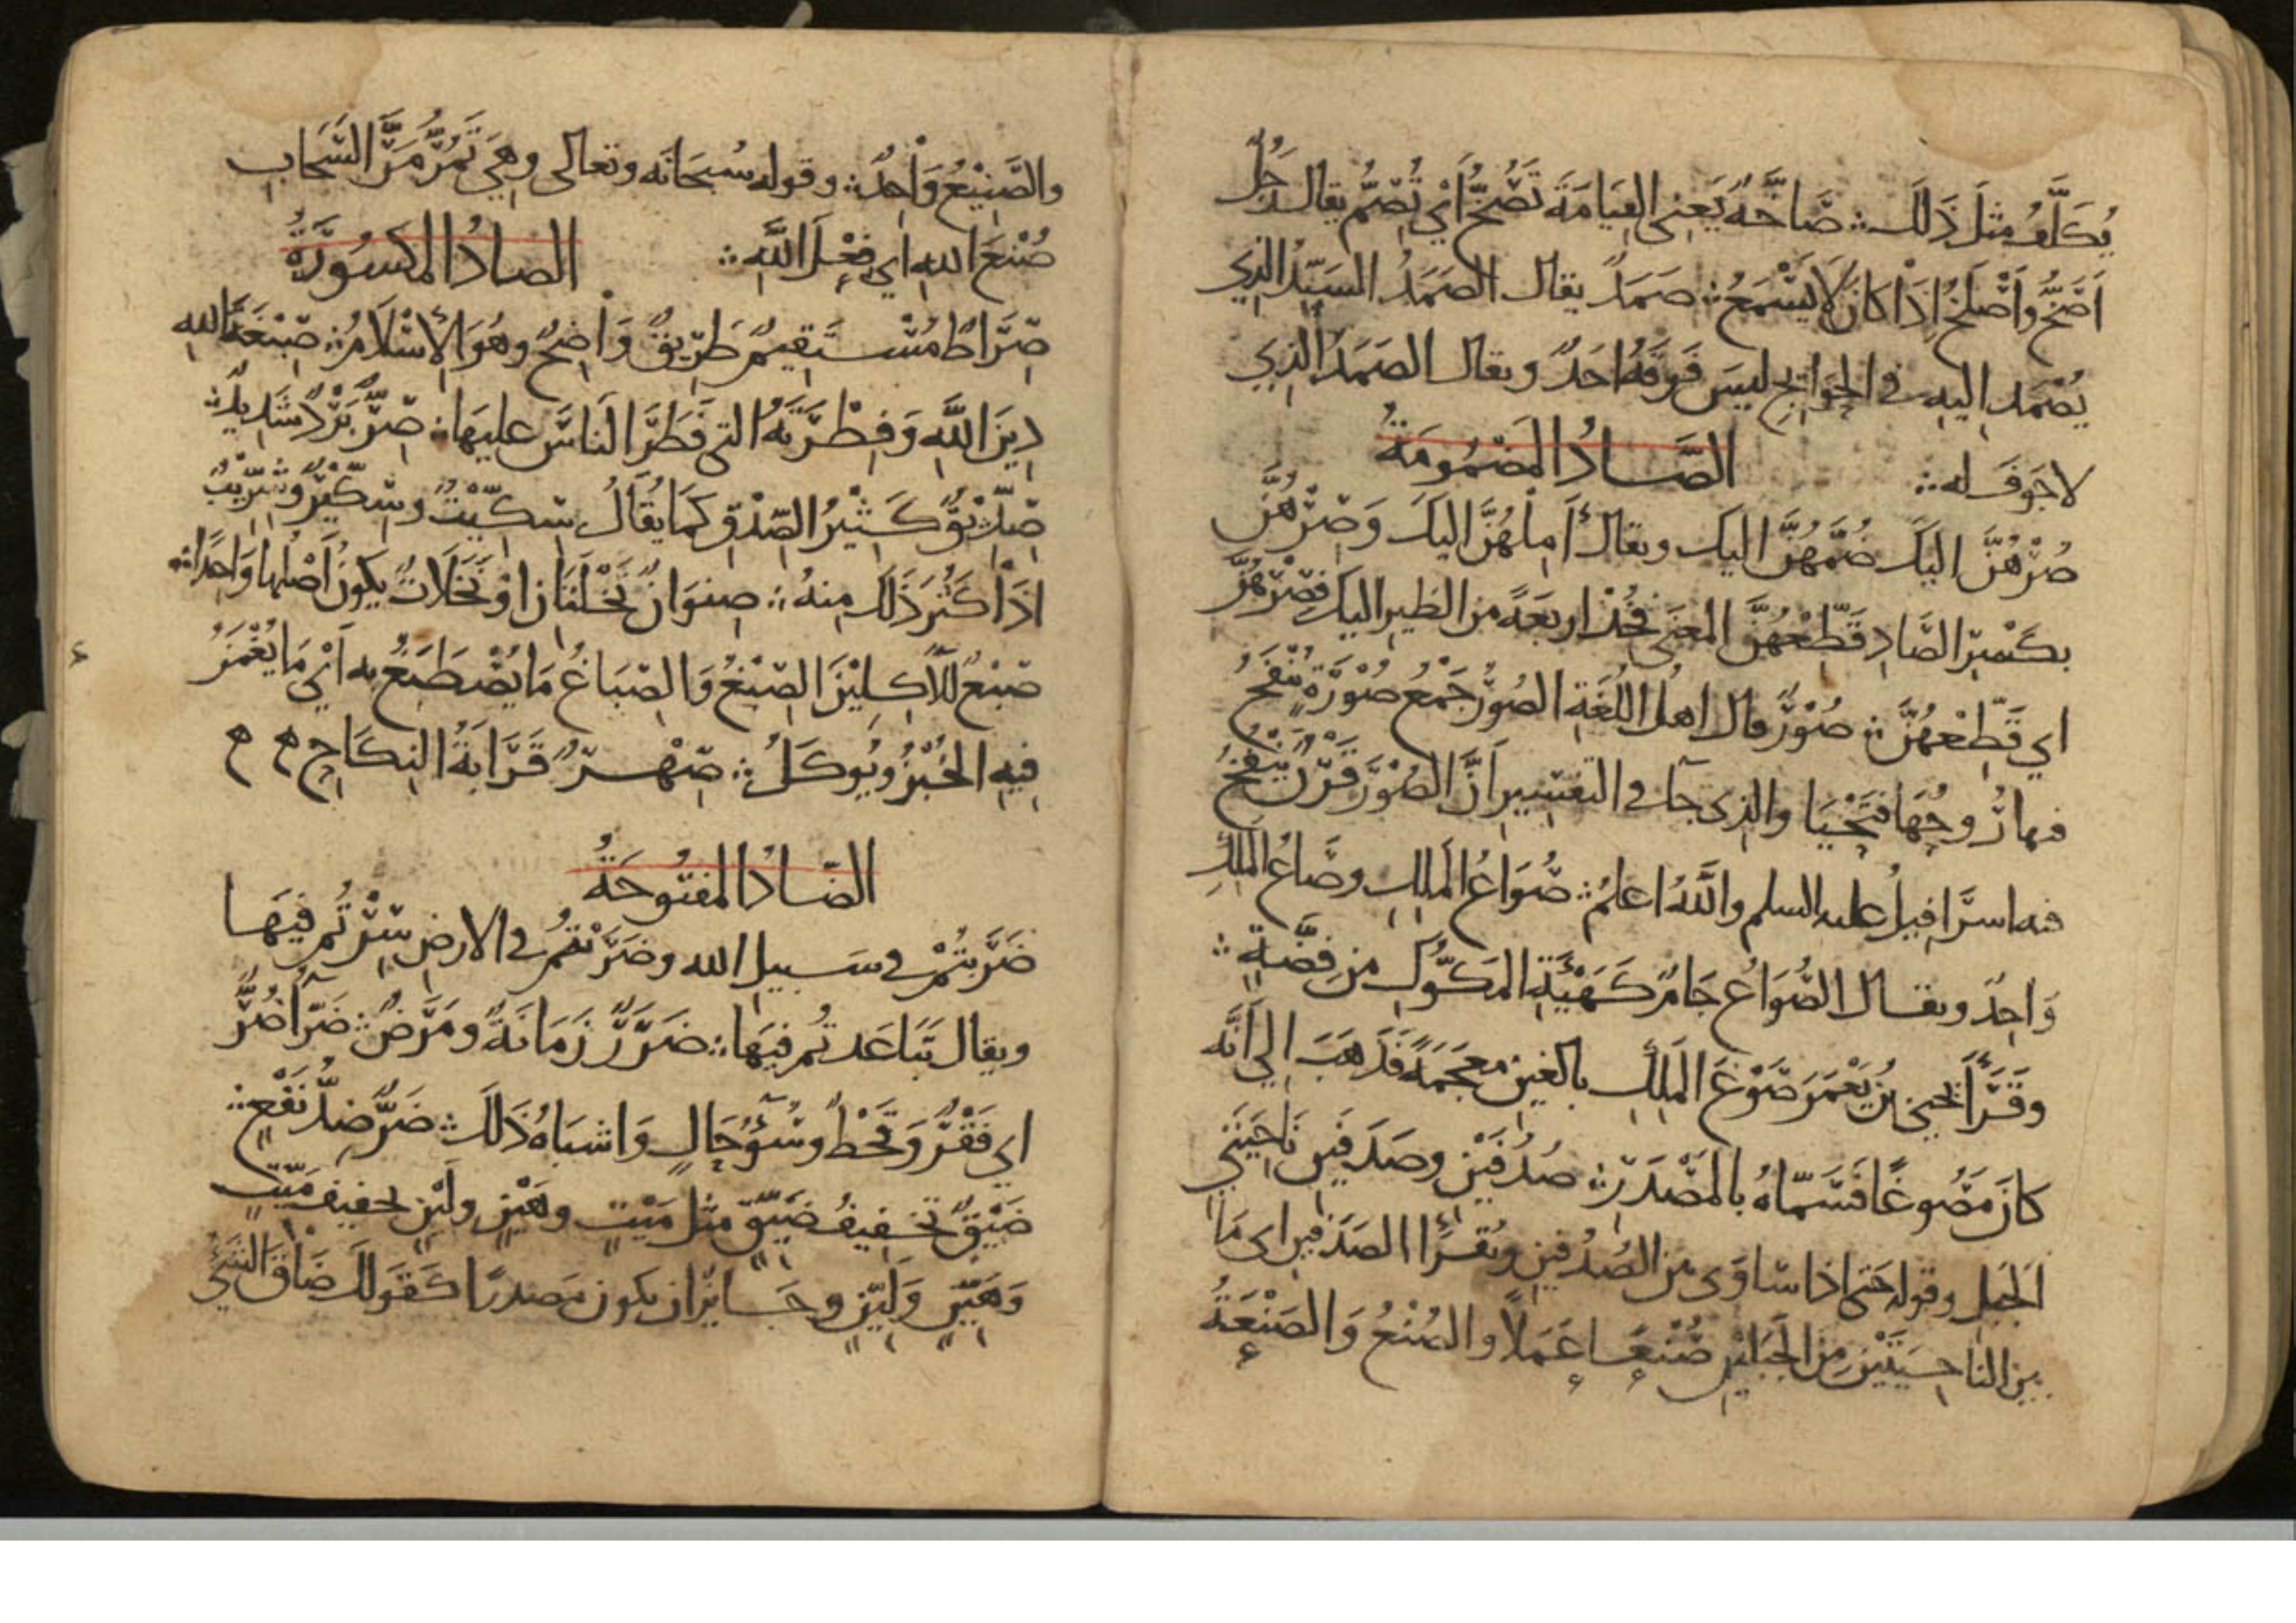 يُكَلَّفُ مثلَ ذَلكَ ∴ صَاخَّةٌ يَعني القِيَامَةَ تَصُخُّ أي تُصِمُّ يقال رَجُلٌ
أَصَخُّ وأَصْلَخُ إذَا كانَ لَا يَسْمَعُ ∴ صَمَدٌ يقال الصَمَدُ السَيّدُ الذي
يُصْمَد اليهِ في الحوَايجِ ليسَ فَوقهُ احَدٌ ويقال الصَمَدُ الذِي
لا جَوفَ له ∴ الصَّادُ المَضمُومَةُ
صُرْهُنَّ اليكَ ضُمَّهُنَّ اليكَ ويقال أَمِلْهُنَّ اليكَ وَصِرْهُنَّ
بكَسْرِ الصَّادِ قَطِّعْهُنَّ المعنَى فخُذ اربعَةً من الطيرِ اليكَ فصِرْهُنَّ
اي قَطِّعْهُنَّ ∴ صُوْرٌ قال اهلُ اللُغَةِ الصُوْرُ جَمْعُ صُوْرَةٍ يُنْفَخُ
فيها رُوحُهَا فتَحْيَا والذِى جآ في التفسِيرِ انَّ الصُوْرَ قَرْنٌ يَنْفُخُ
فيه اسرَافِيلُ عليه السلم واللَّهُ اعلمُ ∴ صُوَاعُ المَلِكِ وصَاعُ المَلِكِ
وَاحِدٌ ويقال الصُّوَاعُ جَامٌ كَهَيْئَةِ المَكُّوكِ مِن فِضَّةٍ ∴
وقَرَأ يحيى بنُ يَعْمَرَ صَوْغَ المَلِكِ بالغينِ معجَمَةً فذَهبَ الي أنَّه
كانَ مَصُوغًا فَسَمَّاهُ بالمَصْدَرِ ∴ صُدُفَيْنِ وصَدَفَينِ نَاحِيَتَي
الجَبَلِ وقوله حَتى اذا سَاوَى بين الصُدُفينِ ويُقرَأ الصَدَفينِ اى مَا
بين الناحِيَتَيْنِ مِنَ الجَبَلَيْنِ صُنْعًا عَمَلًا والصُنْعُ وَالصَنْعَةُ
والصَّنِيْعُ وَاحِدٌ ∴ وقوله سُبحَانَه وتعالى وهيَ تَمُرُّ مَرَّ السَّحَابِ
صُنْعَ اللهِ اي فِعْلَ اللَّهِ ∴ الصادُ المكسُورَةُ
صِرَاطٌ مُسْتَقِيمٌ طَرِيقٌ وَاضِحٌ وهُوَ الإسْلَامُ ∴ صِبْغَةَ اللهِ
دِينَ اللَّهِ وَفِطْرَتَهُ التي فَطَرَ الناسَ عليهَا ∴ صِرٌّ بَرْدٌ شَدِيدٌ ∴
صِدِّيْقٌ كَثِيْرُ الصِّدْقِ كمَا يُقَالُ سِكِّيْتٌ وسِكِّيْرٌ وشِرِّيْبٌ
اذَا كَثُرَ ذَلكَ مِنهُ ∴ صِنوَانٌ نَخْلَتَانِ اوْ نَخَلَاتٌ يكونُ أَصْلُها وَاحِدًا ∴
صِبْغٍ للآكِلِيْنَ الصِبْغُ وَالصِبَاغُ مَا يُصْطَبَغُ به أَيْ مَا يُغْمَزُ
فيهِ الخُبْزُ ويُوكَلُ ∴ صِهْرٌ قَرَابَةُ النِكَاحِ ه ه
الضَادُ المفتُوحَةُ
ضَرَبتُمْ في سَبيلِ الله وضَرَبْتُمْ في الارضِ سِرْتُم فيهَا
ويقال تَبَاعَدتُم فيهَا ∴ ضَرَرٌ زَمَانَةٌ ومَرَضٌ ∴ ضَرّآ ضُرٌّ
اي فَقْرٌ وَقَحْطٌ وسُوْءُ حَالٍ وَاشبَاهُ ذَلكَ ∴ ضَرٌّ ضِدُّ نَفْعٍ ∴
ضَيْقٍ تخفِيفُ ضَيّقٍ مثل مَيْتٍ وهَيْنٍ ولَيْنٍ تخفيف مَيّتٍ
وَهَيّنٍ وَلَيّنٍ وجَايزٌ ان يكون مَصدرًا كقَولكَ ضَاقَ الشيْءُ